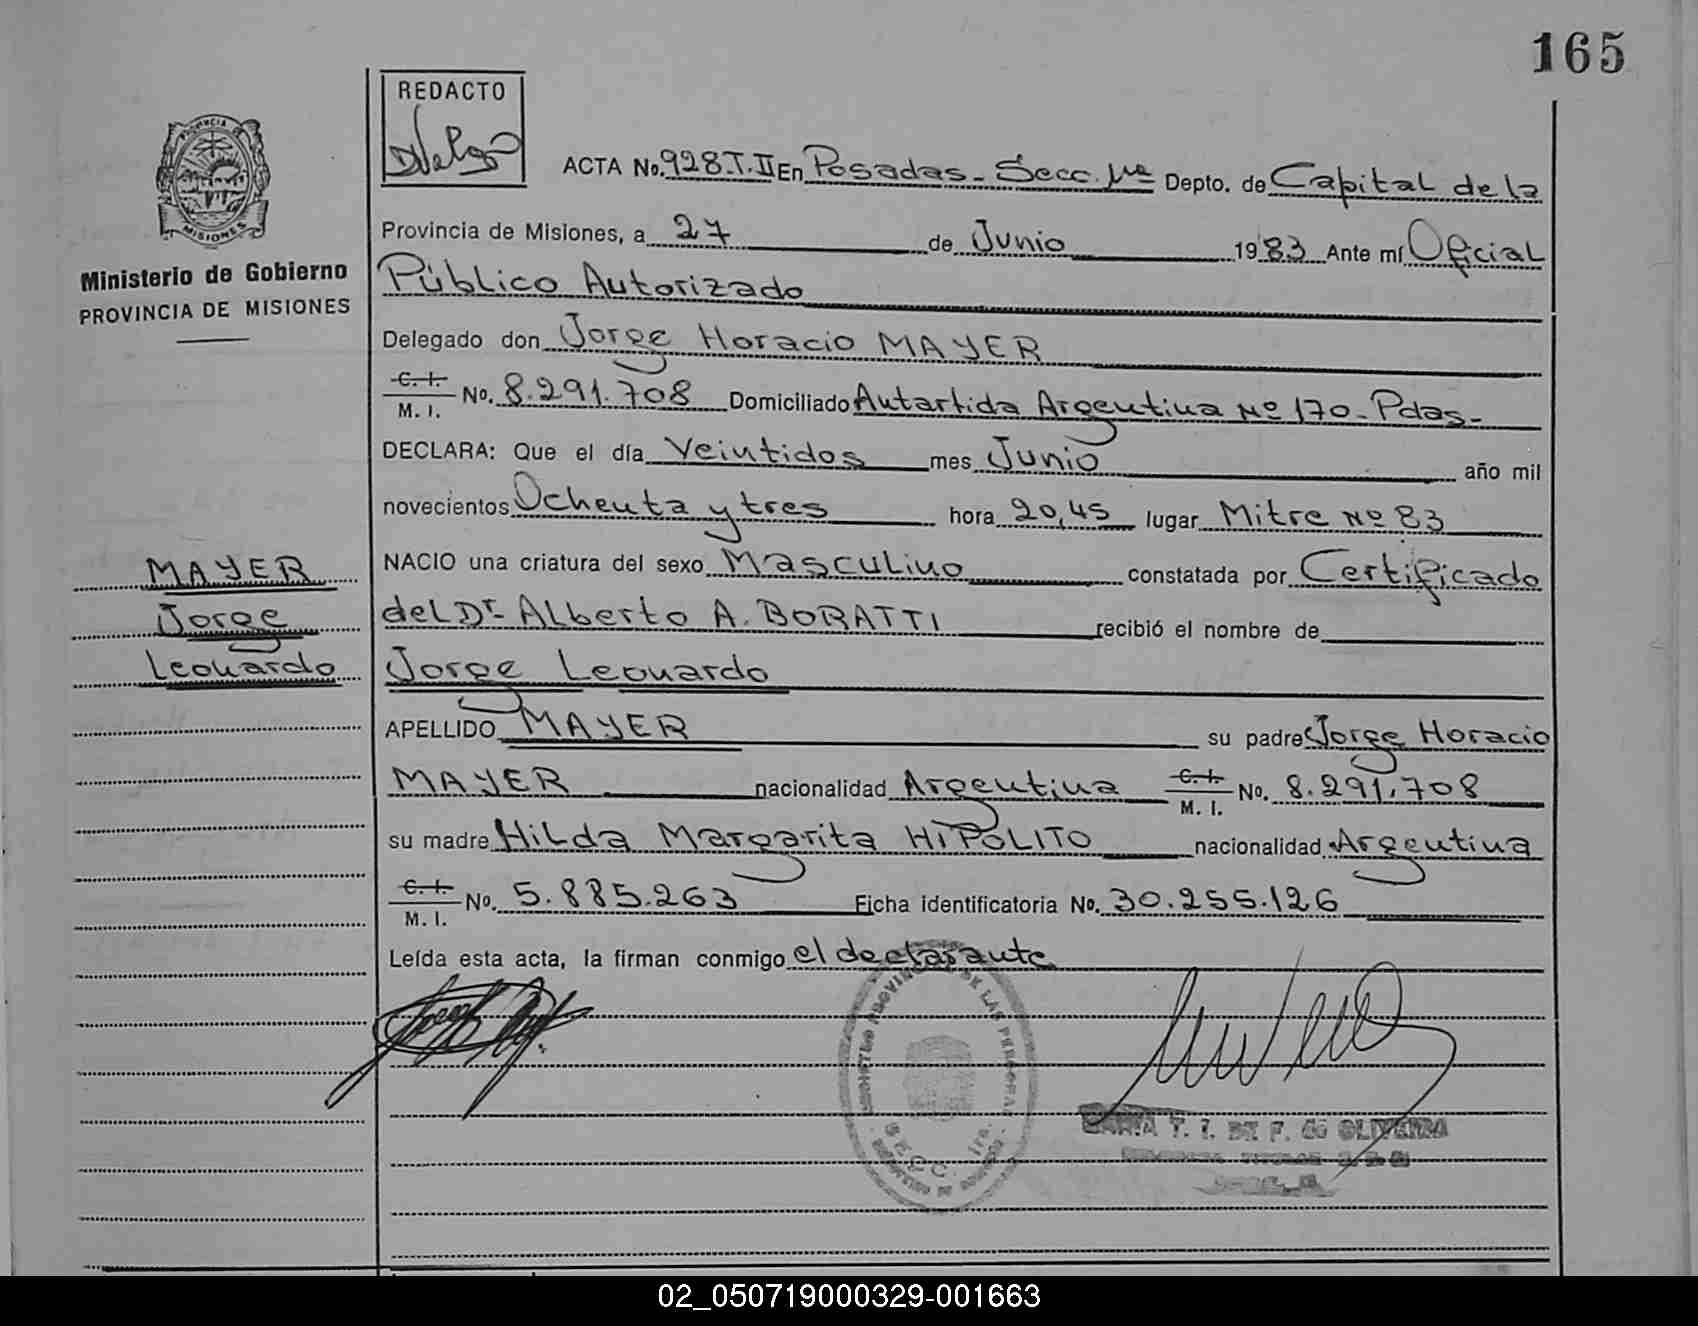 165
REDACTO
PROVINCIA DE
MISIONES
Ministerio de Gobierno
PROVINCIA DE MISIONES
ACTA No. 928.T.II En Posadas - Secc. 1ra Depto. de Capital de la
Provincia de Misiones, a 27 de Junio 1983 Ante mí Oficial
Público Autorizado
Delegado don Jorge Horacio MAYER
C. I.
M. I. No. 8.291.708 Domiciliado Autartida Argentina No 170 - Pdas -
DECLARA: Que el día Veintidos mes Junio año mil
novecientos Ochenta y tres hora 20,45 lugar Mitre No 83
NACIO una criatura del sexo Masculino constatada por Certificado
del Dr. Alberto A. BORATTI recibió el nombre de
Jorge Leonardo
APELLIDO MAYER su padre Jorge Horacio
MAYER nacionalidad Argentina C. I. M. I. No. 8.291.708
su madre Hilda Margarita HIPOLITO nacionalidad Argentina
C. I.
M. I. No. 5.885.263 Ficha identificatoria No. 30.255.126
Leída esta acta, la firman conmigo el declarante
MAYER
Jorge
Leonardo
DE LAS PERSONAS
SECC. 1ra.
MARIA T. I. DE F. de OLIVEIRA
02_050719000329-001663